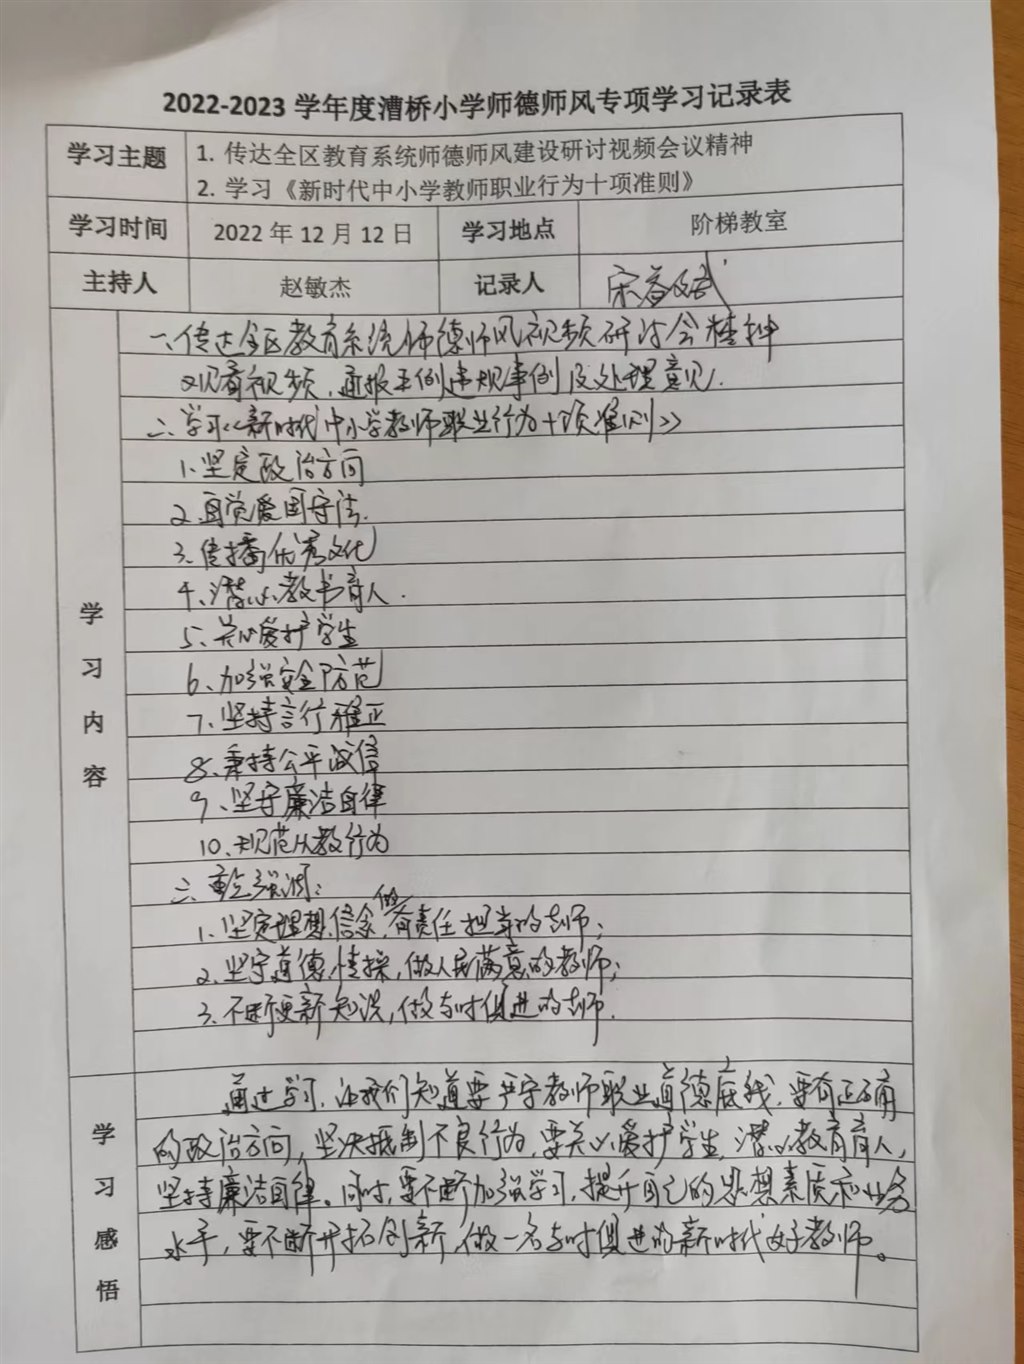 2022-2023 学年度漕桥小学师德师风专项学习记录表
学习主题
1. 传达全区教育系统师德师风建设研讨视频会议精神
2. 学习《新时代中小学教师职业行为十项准则》
学习时间 2022 年 12 月 12 日 学习地点 阶梯教室
主持人 赵敏杰 记录人 宋
学习内容
一、传达全区教育系统师德师风视频研讨会精神
观看视频，通报五例违规事例及处理意见．
二、学习《新时代中小学教师职业行为十项准则》
1、坚定政治方向
2、自觉爱国守法．
3、传播优秀文化
4、潜心教书育人．
5、关心爱护学生
6、加强安全防范
7、坚持言行雅正
8、秉持公平诚信
9、坚守廉洁自律
10、规范从教行为
三、重点强调：
1、坚定理想信念，做有责任担当的老师；
2、坚守道德情操，做人民满意的教师；
3、不断更新知识，做与时俱进的老师．
学习感悟
通过学习，让我们知道要严守教师职业道德底线，要有正确
的政治方向，坚决抵制不良行为，要关心爱护学生，潜心教育育人，
坚持廉洁自律。同时，要不断加强学习，提升自己的思想素质和业务
水平，要不断开拓创新，做一名与时俱进的新时代好教师。